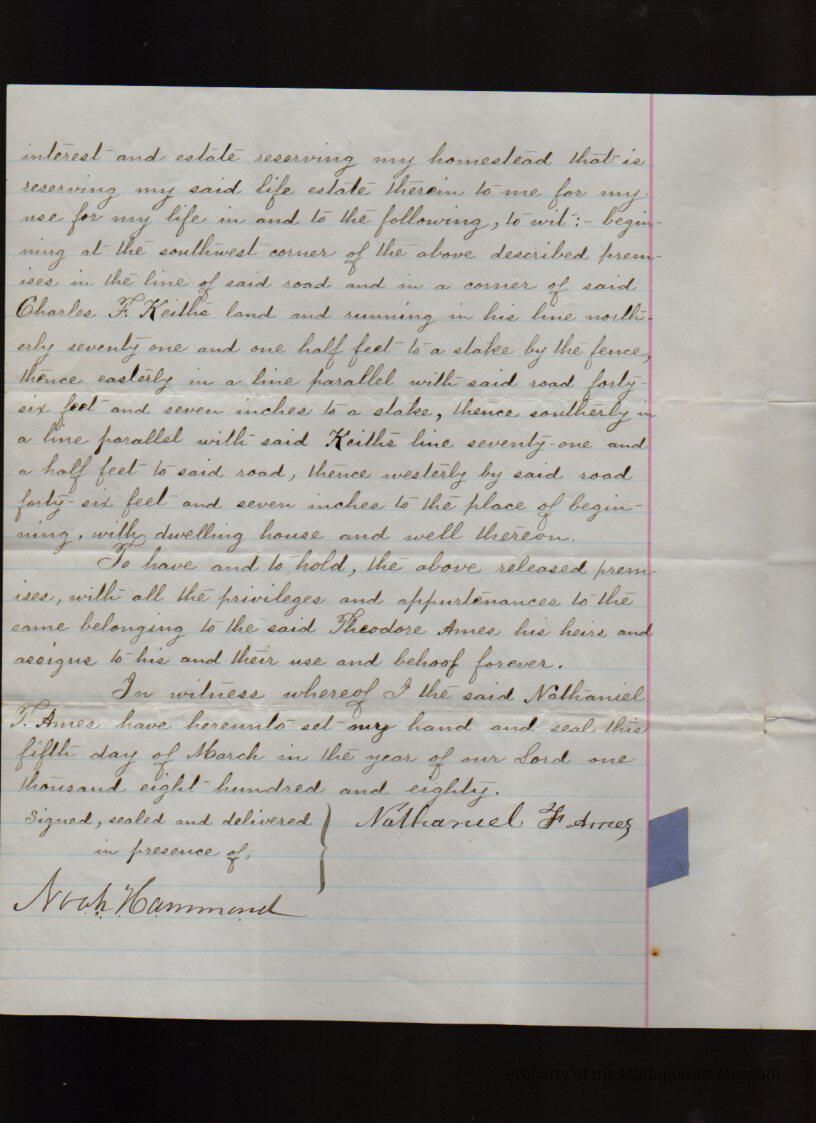 interest and estate reserving my homestead that is
reserving my said life estate therein to me for my
use for my life in and to the following, to wit:- begin-
ning at the southwest corner of the above described prem-
ises in the line of said road and in a corner of said
Charles F. Keith's land and running in his line north-
erly seventy one and one half feet to a stake by the fence,
thence easterly in a line parallel with said road forty-
six feet and seven inches to a stake, thence southerly in
a line parallel with said Keith's line seventy-one and
a half feet to said road, thence westerly by said road
forty-six feet and seven inches to the place of begin-
ning, with dwelling house and well thereon.
To have and to hold, the above released prem-
ises, with all the privileges and appurtenances to the
same belonging to the said Theodore Ames his heirs and
assigns to his and their use and behoof forever.
In witness whereof I the said Nathaniel
F. Ames have hereunto set my hand and seal this
fifth day of March in the year of our Lord one
thousand eight hundred and eighty.
Signed, sealed and delivered } Nathaniel F Ames
in presence of,
Noah Hammond
Property of the Mattapoisett Museum